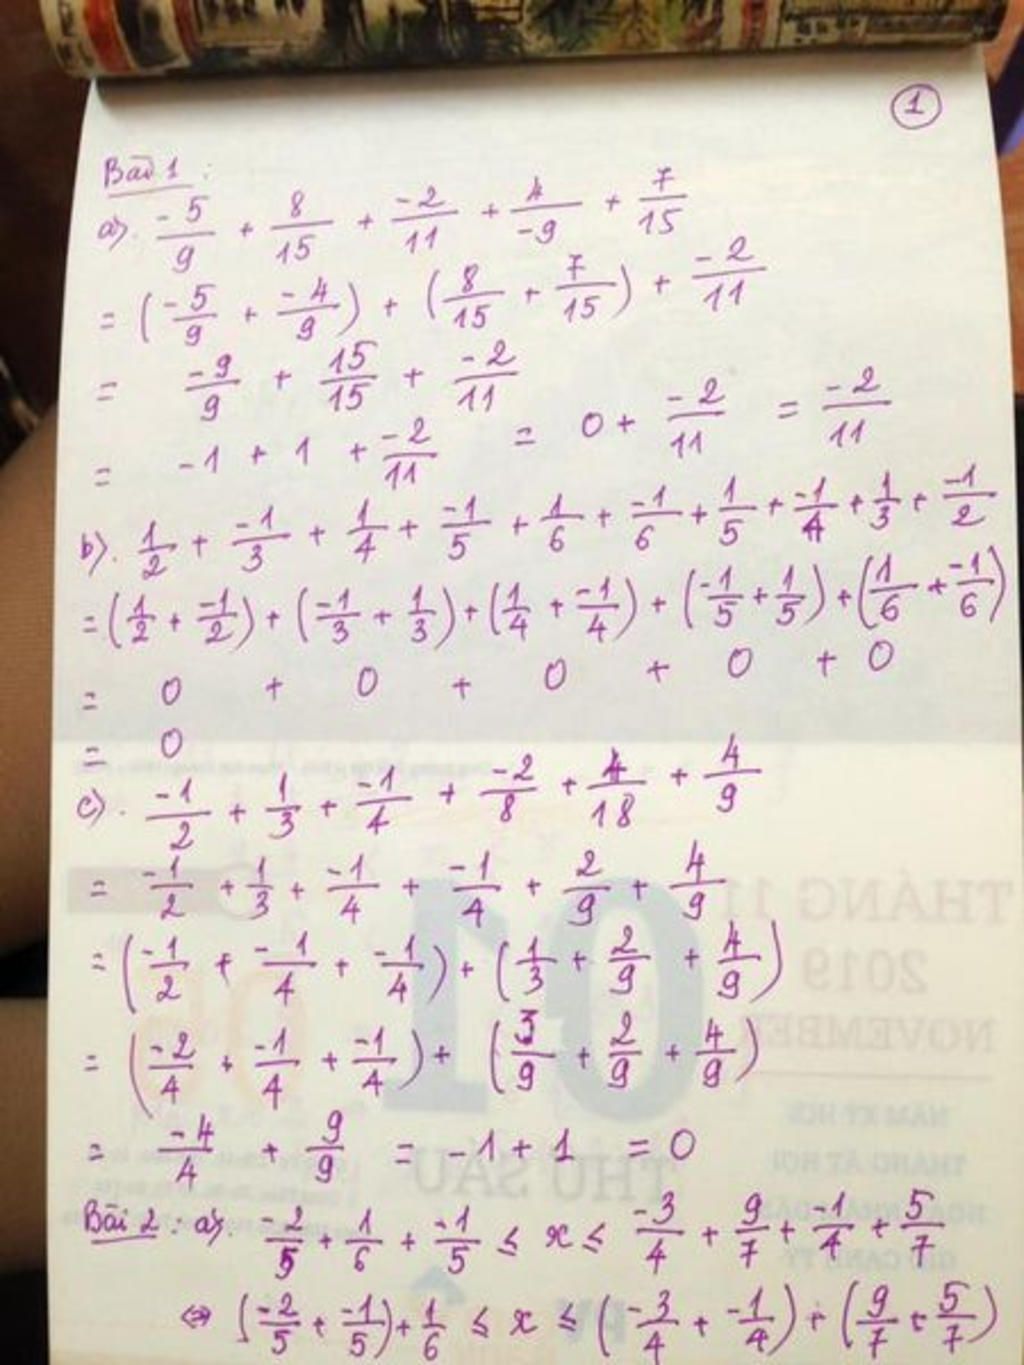 1
Bài 1 :
a). -5/9 + 8/15 + -2/11 + 4/-9 + 7/15
= (-5/9 + -4/9) + (8/15 + 7/15) + -2/11
= -9/9 + 15/15 + -2/11
= -1 + 1 + -2/11 = 0 + -2/11 = -2/11
b). 1/2 + -1/3 + 1/4 + -1/5 + 1/6 + -1/6 + 1/5 + -1/4 + 1/3 + -1/2
= (1/2 + -1/2) + (-1/3 + 1/3) + (1/4 + -1/4) + (-1/5 + 1/5) + (1/6 + -1/6)
= 0 + 0 + 0 + 0 + 0
= 0
c). -1/2 + 1/3 + -1/4 + -2/8 + 4/18 + 4/9
= -1/2 + 1/3 + -1/4 + -1/4 + 2/9 + 4/9
= (-1/2 + -1/4 + -1/4) + (1/3 + 2/9 + 4/9)
= (-2/4 + -1/4 + -1/4) + (3/9 + 2/9 + 4/9)
= -4/4 + 9/9 = -1 + 1 = 0
Bài 2 : a). -2/5 + 1/6 + -1/5 ≤ x ≤ -3/4 + 9/7 + -1/4 + 5/7
⇔ (-2/5 + -1/5) + 1/6 ≤ x ≤ (-3/4 + -1/4) + (9/7 + 5/7)
THÁNG 11
2019
NOVEMBER
01
THỨ SÁU